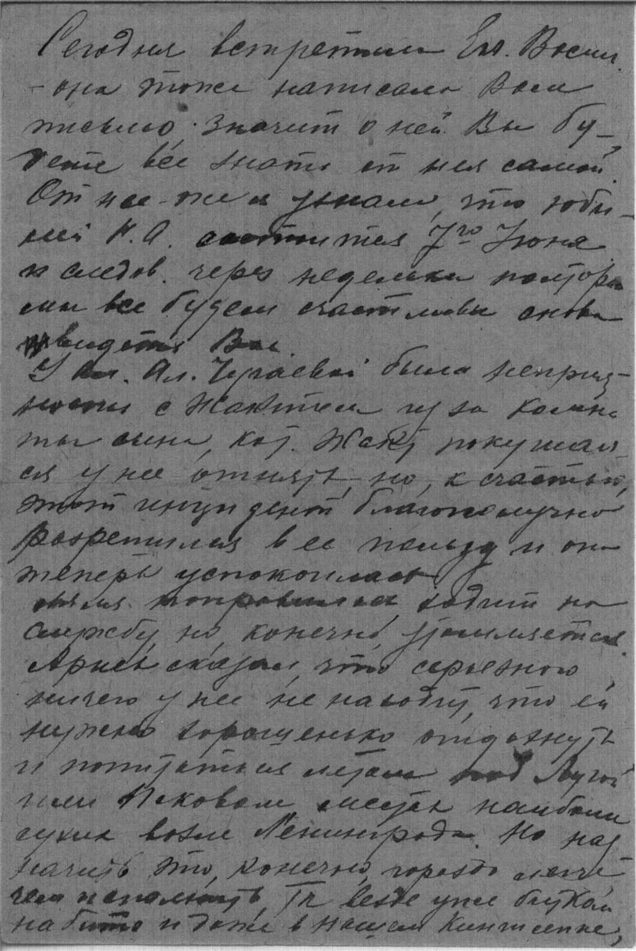 Сегодня встретили Ел. Васил.
- она тоже написала Вам
письмо. Значит о ней Вы бу-
дете все знать от нея самой.
От нее-же я узнала, что юби-
лей Н.А. состоится 7го Июня
и следов. через недельки полторы
мы все будем счастливы снова
увидеть Вас.
У Ал. была неприят-
ность с Жактом из за комна-
ты сына, кот. Жакт покушал-
ся у нее отнять, но, к счастью,
этот инцидент благополучно
разрешился в ее пользу и она
теперь успокоилась
поправилась, ходит на
службу, но, конечно, утомляется.
сказал, что серьезного
ничего у нее не находит, что ей
нужно хорошенько отдохнуть
и попитаться летом под Лугой
или Псковом, местах наиболее
сухих возле Ленинграда. Но наз-
начить это, конечно, гораздо легче
чем исполнить, тк везде уже битком
набито и даже в нашем Кингисеппе,